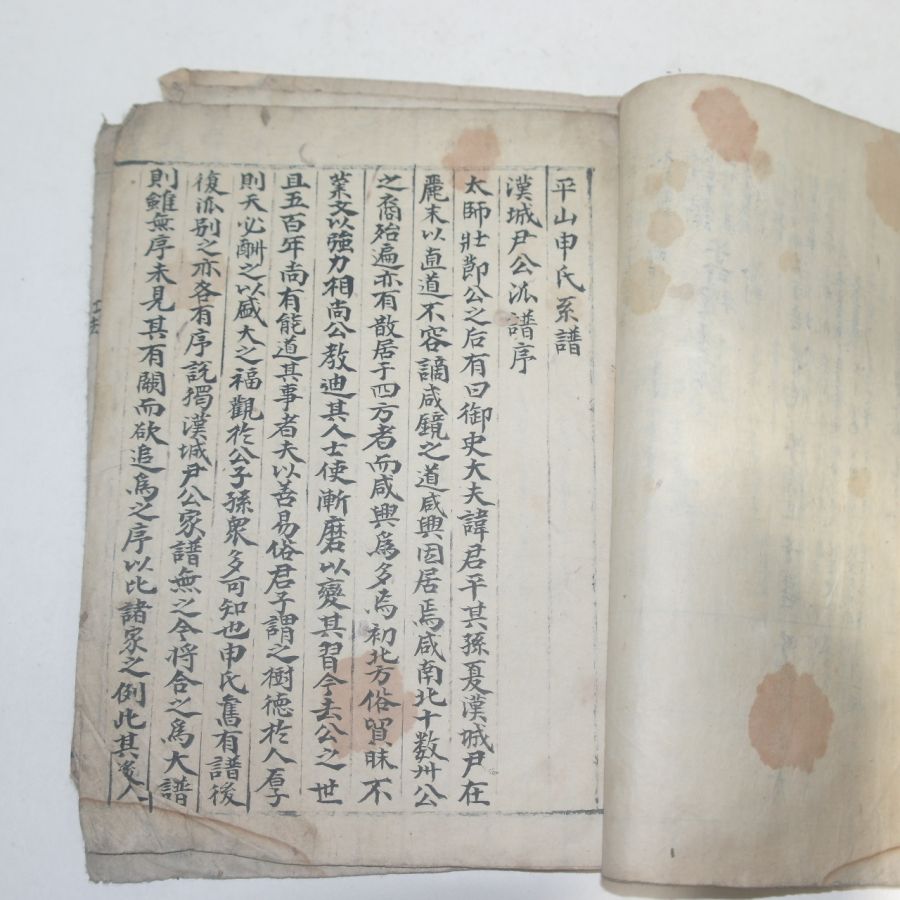 平山申氏系譜
漢城尹公派譜序
太師壯節公之后有曰御史大夫諱君平其孫夏漢城尹在
麗末以直道不容謫咸鏡之道咸興因居焉咸南北十数州公
之裔殆遍亦有散居于四方者而咸興爲多焉初北方俗貿昧不
業文以強力相尚公教迪其人士使漸磨以變其習今去公之世
且五百年尚有能道其事者夫以善易俗君子謂之樹德於人厚
則天必酬之以盛大之福觀於公子孫衆多可知也申氏舊有譜後
復派別之亦各有序說獨漢城尹公家譜無之今将合之爲大譜
則雖無序未見其有闕而欲追爲之序以比諸家之例此其後人